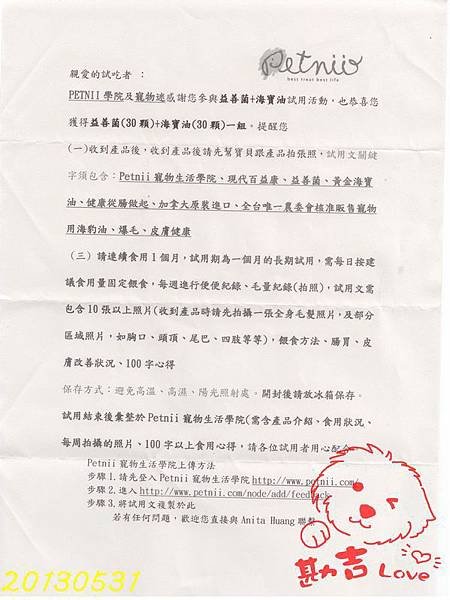 Petnii
best treat best life
親愛的試吃者 ：
PETNII 學院及寵物迷感謝您參與益善菌+海寶油試用活動，也恭喜您
獲得益善菌(30 顆)+海寶油(30 顆)一組。提醒您
(一)收到產品後，收到產品後請先幫寶貝跟產品拍張照，試用文關鍵
字須包含：Petnii 寵物生活學院、現代百益康、益善菌、黃金海寶
油、健康從腸做起、加拿大原裝進口、全台唯一農委會核准販售寵物
用海豹油、爆毛、皮膚健康
(三) 請連續食用 1 個月，試用期為一個月的長期試用，需每日按建
議食用量固定餵食，每週進行便便紀錄、毛量紀錄(拍照)，試用文需
包含 10 張以上照片(收到產品時請先拍攝一張全身毛髮照片，及部分
區域照片，如胸口、頭頂、尾巴、四肢等等)，餵食方法、腸胃、皮
膚改善狀況、100 字心得
保存方式：避免高溫、高濕、陽光照射處。開封後請放冰箱保存。
試用結束後彙整於 Petnii 寵物生活學院(需含產品介紹、食用狀況、
每周拍攝的照片、100 字以上食用心得，請各位試用者用心配合
Petnii 寵物生活學院上傳方法
步驟 1.請先登入 Petnii 寵物生活學院 http://www.petnii.com/
步驟 2.進入 http://www.petnii.com/node/add/feedback
步驟 3.將試用文複製於此
若有任何問題，歡迎您直接與 Anita Huang 聯繫
勘吉 Love
20130531